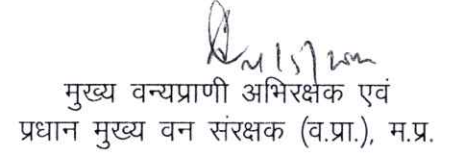 मुख्य वन्यप्राणी अभिरक्षक एवं
प्रधान मुख्य वन संरक्षक (व.प्रा.), म.प्र.